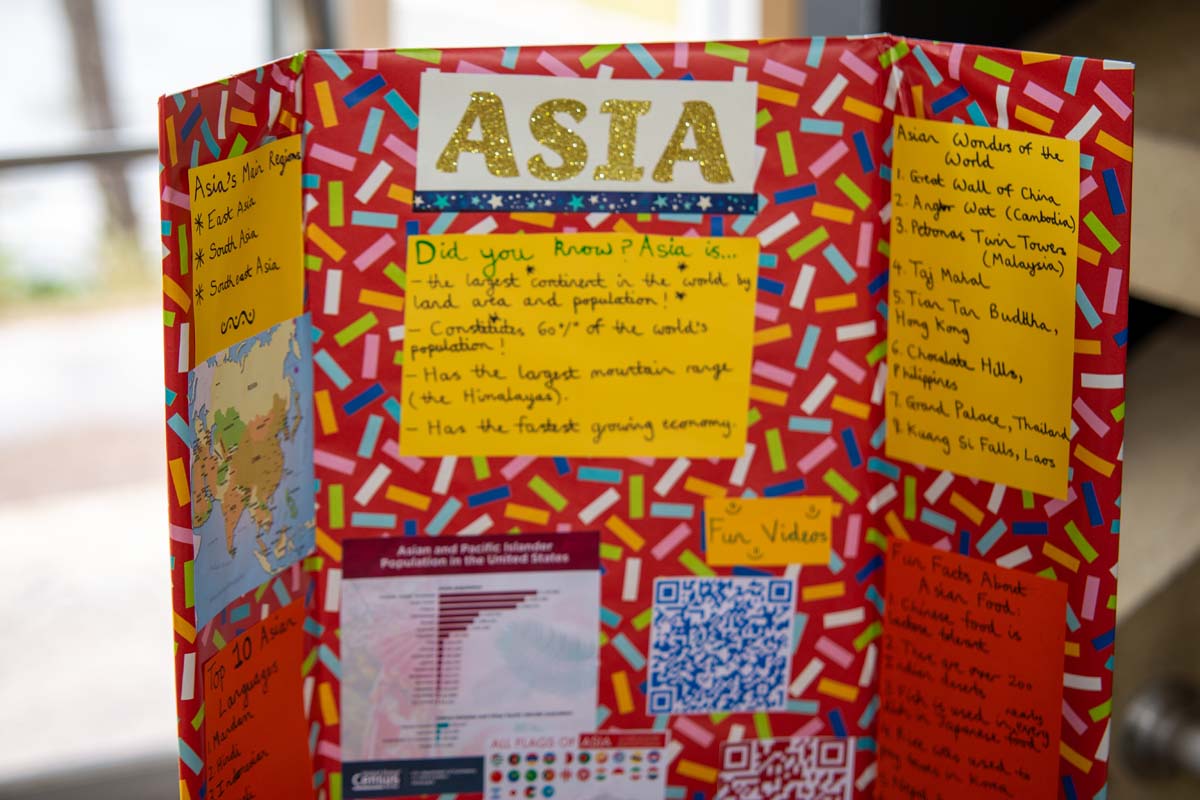 ASIA
Asia's Main Regions
* East Asia
* South Asia
* Southeast Asia
Did you know? Asia is...
- the largest continent in the world by
land area and population!
- Constitutes 60% of the world's
population!
- Has the largest mountain range
(the Himalayas).
- Has the fastest growing economy.
Asian Wonders of the
World
1. Great Wall of China
2. Angkor Wat (Cambodia)
3. Petronas Twin Towers
(Malaysia)
4. Taj Mahal
5. Tian Tan Buddha,
Hong Kong
6. Chocolate Hills,
Philippines
7. Grand Palace, Thailand
8. Kuang Si Falls, Laos
Fun Videos
Asian and Pacific Islander
Population in the United States
Census
ALL FLAGS OF ASIA
Top 10 Asian
Languages
1. Mandarin
2. Hindi
3. Indonesian
Fun Facts About
Asian Food:
1. Chinese food is
lactose tolerant
2. There are over 200
Indian deserts
3. Fish is used in nearly every
dish in Japanese food
4. Rice was used to
in Korea